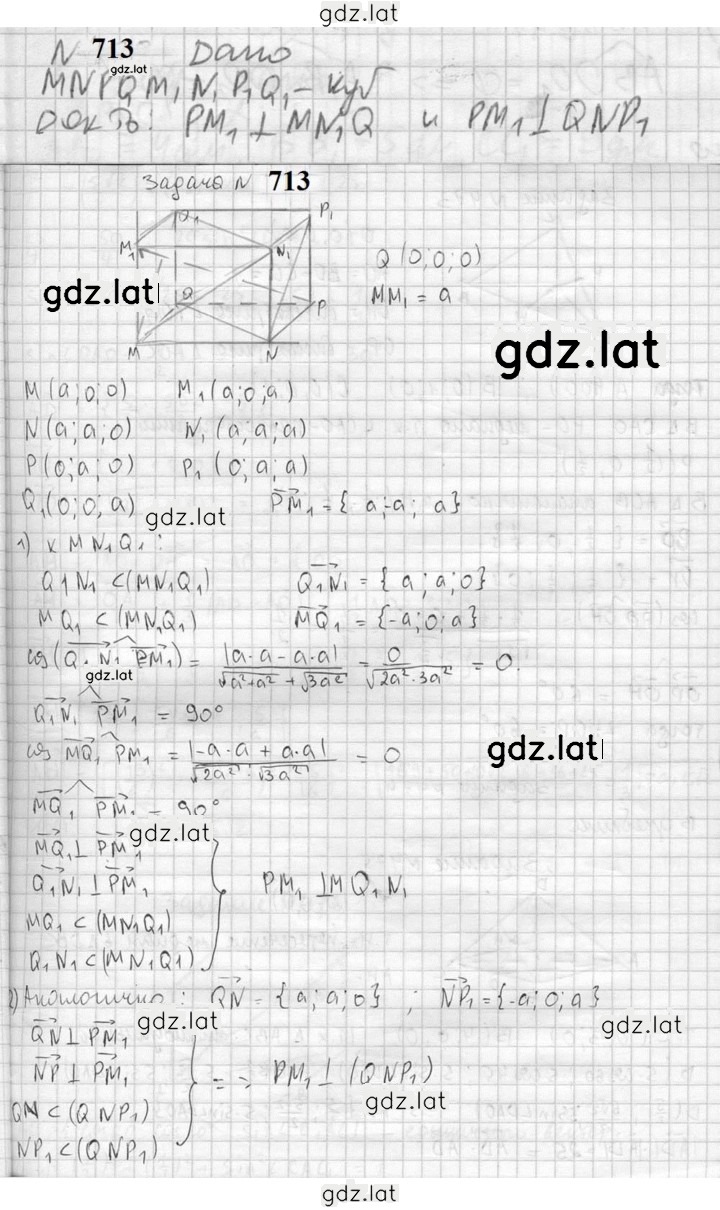 gdz.lat
N 713 Дано
gdz.lat
MNPQM₁N₁P₁Q₁ – куб
Док-ть: PM₁ ⊥ MN₁Q и PM₁ ⊥ QNP₁
Задача N 713
Q₁ P₁
M₁ N₁
Q P
M N
Q (0;0;0)
MM₁ = a
gdz.lat
gdz.lat
M (a;0;0) M₁ (a;0;a)
N (a;a;0) N₁ (a;a;a)
P (0;a;0) P₁ (0;a;a)
Q₁ (0;0;a) PM₁ = { a;-a; a}
gdz.lat
1) к MN₁Q₁ :
Q1N₁ ⊂ (MN₁Q₁) Q₁N₁ = { a; a; 0}
MQ₁ ⊂ (MN₁Q₁) MQ₁ = {-a; 0; a}
cos (Q₁N₁ PM₁) = |a·a – a·a| / √a²+a² + √3a² = 0 / √2a²·3a² = 0.
gdz.lat
Q₁N₁ PM₁ = 90°
cos MQ₁ PM₁ = |-a·a + a·a| / √2a² · √3a² = 0
gdz.lat
MQ₁ PM₁ = 90°
gdz.lat
MQ₁ ⊥ PM₁
Q₁N₁ ⊥ PM₁ PM₁ ⊥ MQ₁N₁
MQ₁ ⊂ (MN₁Q₁)
Q₁N₁ ⊂ (MN₁Q1)
2) Аналогично : QN = { a; a; 0} ; NP₁ = {-a; 0; a}
gdz.lat
gdz.lat
QN ⊥ PM₁
NP ⊥ PM₁ => PM₁ ⊥ (QNP₁)
gdz.lat
QN ⊂ (QNP₁)
NP₁ ⊂ (QNP₁)
gdz.lat